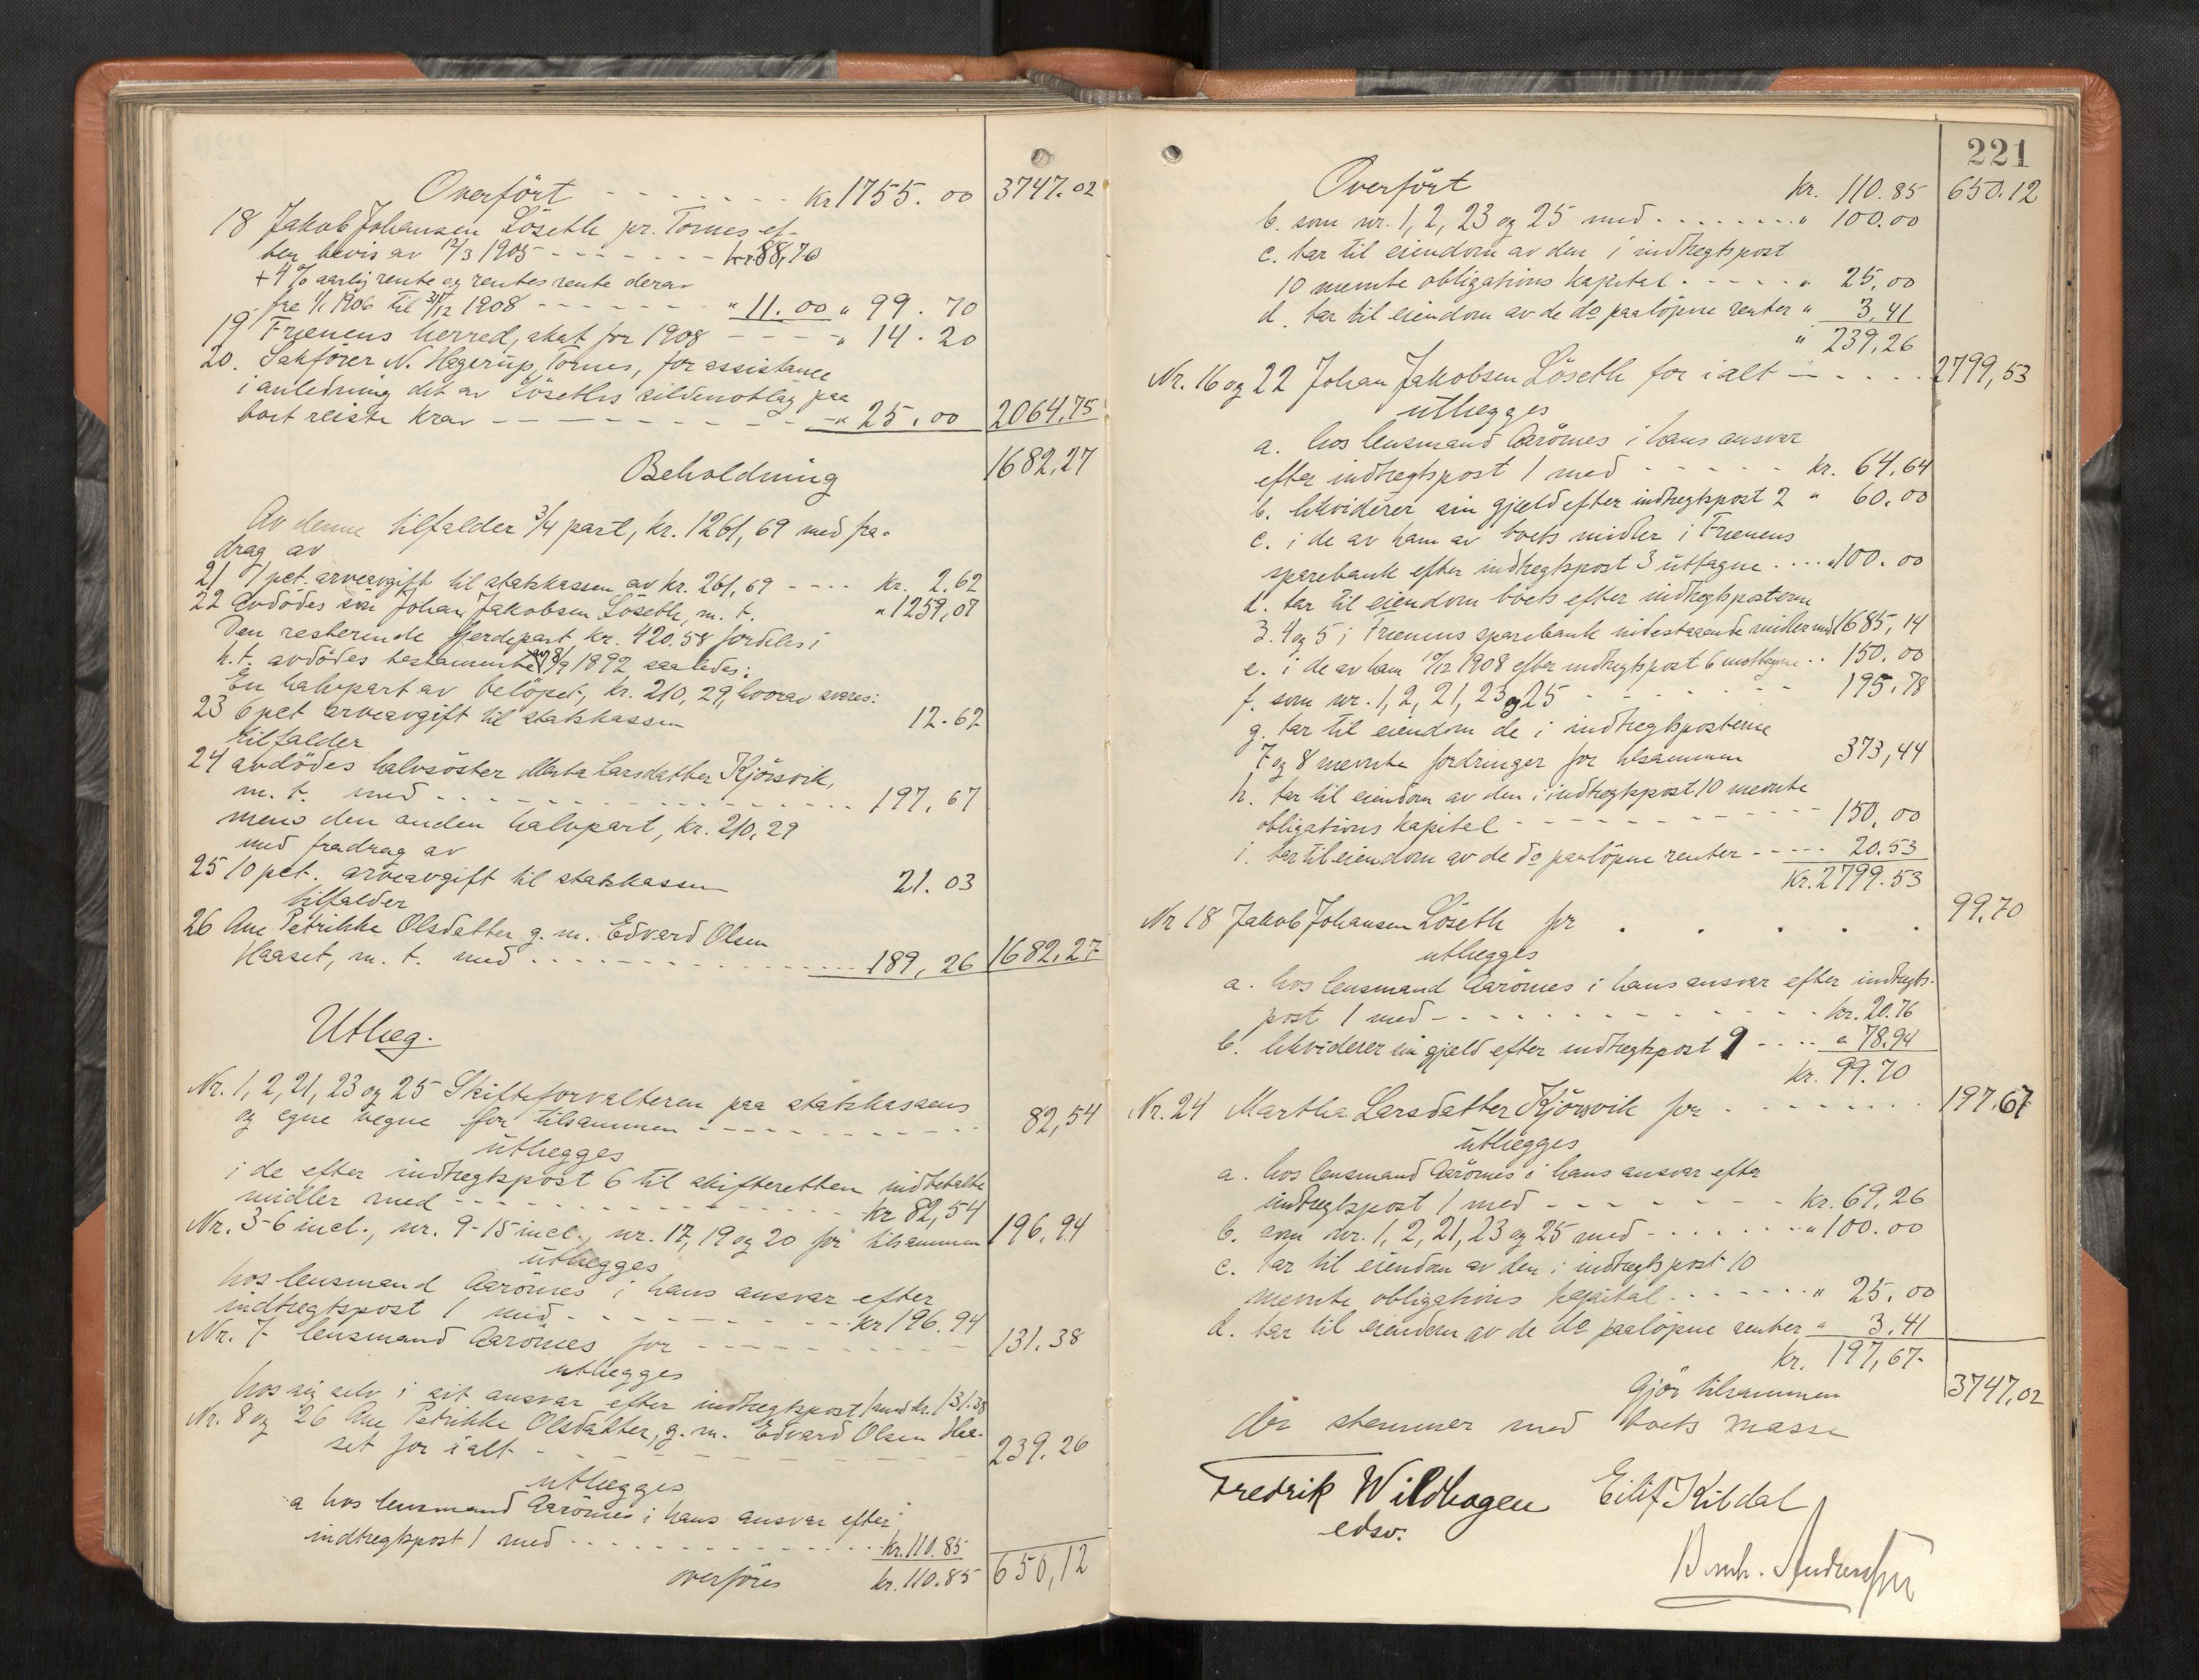 Overført - - - - - - kr 1755.00 3747.02
18 Jakob Johansen Löseth pr. Tornes ef-
ter bevis av 12/3 1905 - - - - - - kr. 88,70
+ 4 % aarlig rente og rentesrente derav
fra 1/1 1906 til 31/12 1908 - - - - - " 11.00 " 99.70
19 Frænens herred, skat for 1908 - - - - " 14.20
20. Sakfører N. Hagerup, Tornes, for assistance
i anledning det av Löseths sildenotlag paa
boet reiste krav - - - - - - - - - " 25.00 2064,75
Beholdning 1682,27
Av denne tilfalder 3/4 part, kr. 1261,69 med fra-
drag av
21 1 pct. arveavgift til statskassen av kr. 261,69 - - - - kr. 2.62
22 avdødes søn Johan Jakobsen Löseth, m. t. " 1259,07
Den resterende fjerdepart kr. 420.58 fordeles i
h.t. avdødes testamente av 8/9 1892 saaledes:
En halvpart av beløpet, kr. 210,29, hvorav svares:
23 6 pct arveavgift til statskassen 12.62
tilfalder
24 avdødes halvsøster Marta Larsdatter Kjörsvik,
m. t. med - - - - - - - - - 197,67
mens den anden halvpart, kr. 210,29
med fradrag av
25 10 pct. arveavgift til statskassen 21.03
tilfalder
26 Ane Petrikke Olsdatter g. m. Edvard Olsen
Haaset, m. t. med - - - - - - - 189,26 1682,27
Utlæg.
Nr. 1, 2, 21, 23 og 25 Skifteforvalteren paa statskassens
og egne vegne for tilsammen - - - - - - - 82,54
utlægges
i de efter indtægtspost 6 til skifteretten indbetalte
midler med - - - - - - - - - kr 82,54
Nr. 3-6 incl., nr. 9-15 incl., nr. 17, 19 og 20 for tilsammen 196.94
utlægges
hos lensmand Aarönes i hans ansvar efter
indtægtspost 1 med - - - - - - - kr 196.94
Nr. 7 lensmand Aarönes for - - - - - - - 131.38
utlægges
hos sig selv i sit ansvar efter indtægtspost 1 med kr. 131.38
Nr. 8 og 26 Ane Petrikke Olsdatter, g. m. Edvard Olsen Haa-
set for ialt - - - - - - - - - 239.26
utlægges
a hos lensmand Aarönes i hans ansvar efter
indtægtspost 1 med - - - - - - - kr. 110.85
overføres kr. 110.85 650,12
221
Overført kr. 110.85 650.12
b. som nr. 1, 2, 23 og 25 med - - - - - - - " 100.00
c. tar til eiendom av den i indtægtspost
10 nævnte obligations kapital - - - - - " 25,00
d. tar til eiendom av de do paaløpne renter " 3,41
" 239,26
Nr. 16 og 22 Johan Jakobsen Löseth for ialt - - - - 2799,53
utlægges
a. hos lensmand Aarönes i hans ansvar
efter indtægtspost 1 med - - - - - kr. 64,64
b. likviderer sin gjæld efter indtægtspost 2 " 60.00
c. i de av ham av boets midler i Frænens
sparebank efter indtægtspost 3 uttagne - - - - " 100.00
d. tar til eiendom boets efter indtægtsposterne
3. 4 og 5 i Frænens sparebank indestaaende midler med 1685,14
e. i de av ham 10/12 1908 efter indtægtspost 6 mottagne - - 150.00
f. som nr. 1, 2, 21, 23 og 25 - - - - - - 195.78
g. tar til eiendom de i indtægtsposterne
7 og 8 nævnte fordringer for tilsammen 373,44
h. tar til eiendom av den i indtægtspost 10 nævnte
obligations kapital - - - - - - - - - 150,00
i. tar til eiendom av de do paaløpne renter - - - - - 20.53
Kr. 2799.53
Nr 18 Jakob Johansen Löseth for . . . . . 99.70
utlægges
a. hos lensmand Aarönes i hans ansvar efter indtægts-
post 1 med - - - - - - - - - - kr. 20.76
b. likviderer sin gjæld efter indtægtspost 9 - - - - " 78.94
kr. 99.70
Nr. 24 Martha Larsdatter Kjörsvik for - - - - - - 197.67
utlægges
a. hos lensmand Aarönes i hans ansvar efter
indtægtspost 1 med - - - - - - - kr. 69,26
b. som nr. 1, 2, 21, 23 og 25 med - - - - - - " 100.00
c. tar til eiendom av den i indtægtspost 10
nævnte obligations kapital - - - - - - - " 25.00
d. tar til eiendom av de do paaløpne renter " 3.41
kr. 197,67
Gjör tilsammen 3747,02
stemmer med boets masse
Fredrik Wildhagen Eilif Kildal
edsv.
Bernh.